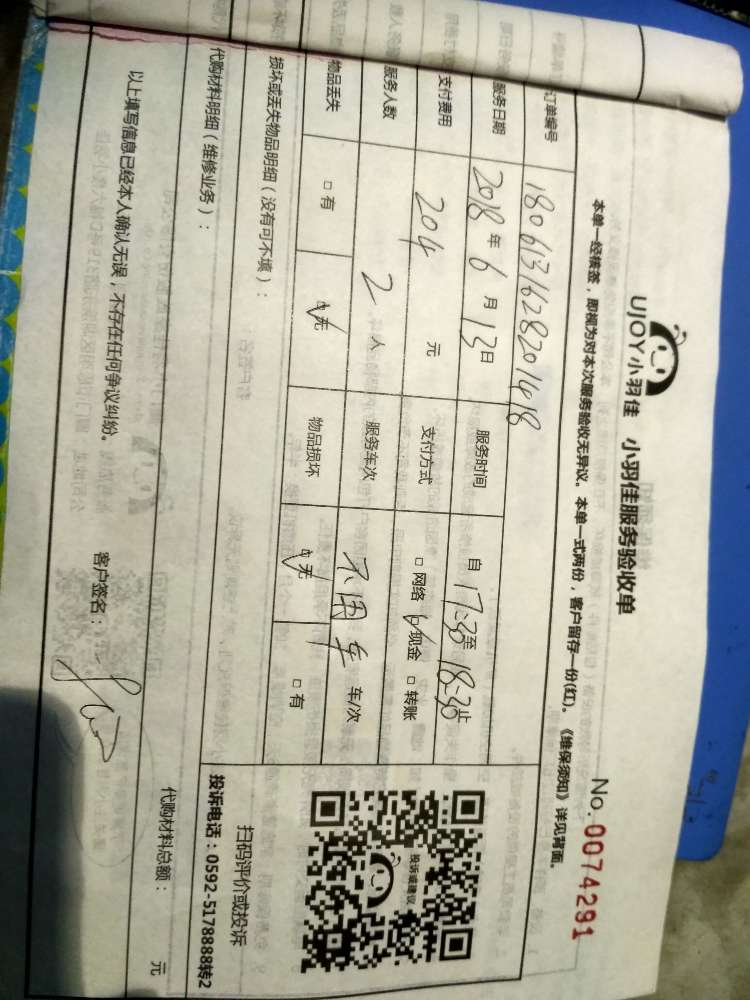 UJOY小羽佳 小羽佳服务验收单
No.0074291
本单一经核签，即视为对本次服务验收无异议。本单一式两份，客户留存一份(红)。《维保须知》详见背面。
订单编号 1806131628201418
服务日期 2018年6月13日 服务时间 自17:30至18:30止
支付费用 204元 支付方式 □网络 ☑现金 □转账
服务人数 2人 服务车次 不用车 车/次
物品丢失 □有 ☑无 物品损坏 ☑无 □有
损坏或丢失物品明细（没有可不填）：
代购材料明细（维修业务）：
代购材料总额： 元
投诉或建议
扫码评价或投诉
投诉电话：0592-5178888转2
以上填写信息已经本人确认无误，不存在任何争议纠纷。
客户签名：